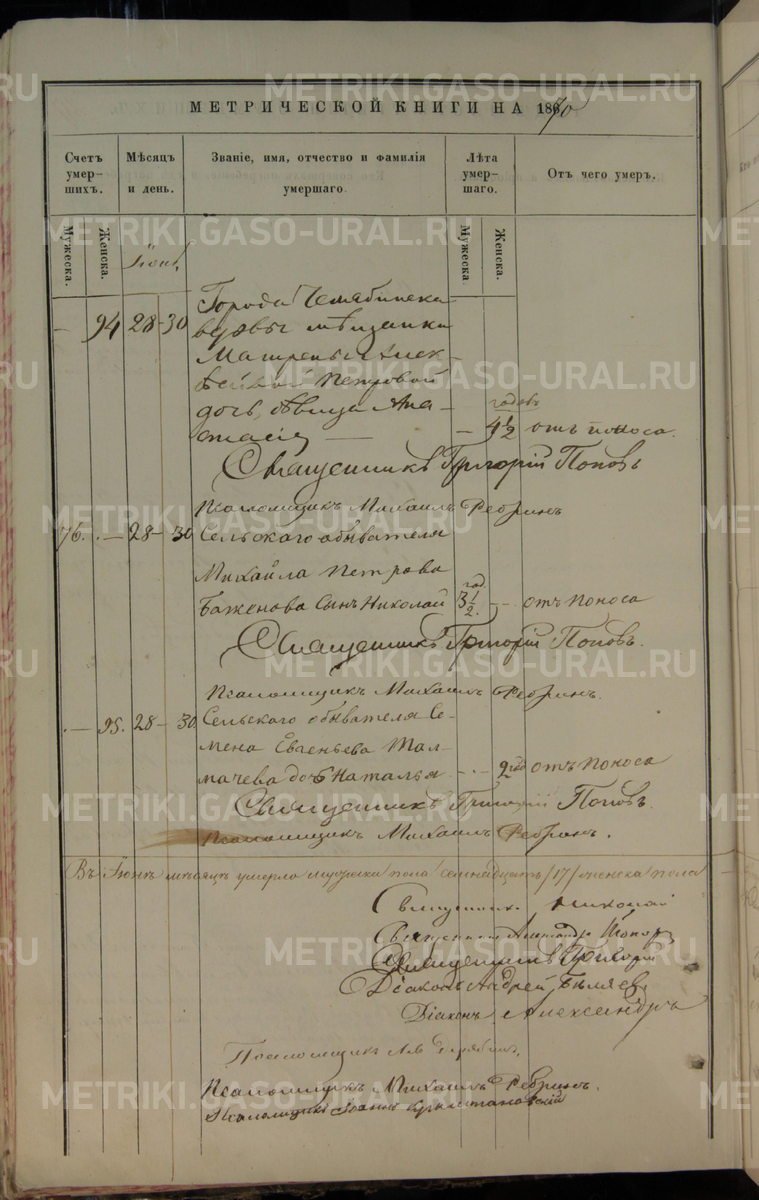 МЕТРИЧЕСКОЙ КНИГИ НА 1870
Счетъ умер-шихъ.
Мѣсяцъ и день.
Званіе, имя, отчество и фамилія умершаго.
Лѣта умер-шаго.
Отъ чего умеръ.
Мужеска.
Женска.
Мужеска.
Женска.
Іюнь
Города Челябинска
— 94 28-30 вдовы мѣщанки
Матрены Алек-
Петровой
дочь, дѣвица Ана- годовъ
стасія — — 4 1/2 отъ поноса.
Священникъ Григорій Поповъ
Псаломщикъ Михаилъ Ребринъ
76. — 28-30 Сельскаго обывателя
Михайла Петрова год
Баженова сынъ Николай 3 1/2. — отъ поноса
Священникъ Григорій Поповъ.
Псаломщикъ Михаилъ Ребринъ.
— 95. 28-30. Сельскаго обывателя Се-
мена Евгеньева Тал-
мачева дочь Наталья — 2 год отъ поноса
Священникъ Григорій Поповъ.
Псаломщикъ Михаилъ Ребринъ.
Въ Іюнѣ мѣсяцѣ умерло мужеска пола семнадцать /17/ женска пола
Священникъ Николай
Священникъ Александръ
Священникъ Григорій
Діаконъ Андрей Бѣляев
Діаконъ Александръ
Псаломщикъ
Псаломщикъ Михаилъ Ребринъ.
Псаломщикъ Іоаннъ
METRIKI.GASO-URAL.RU